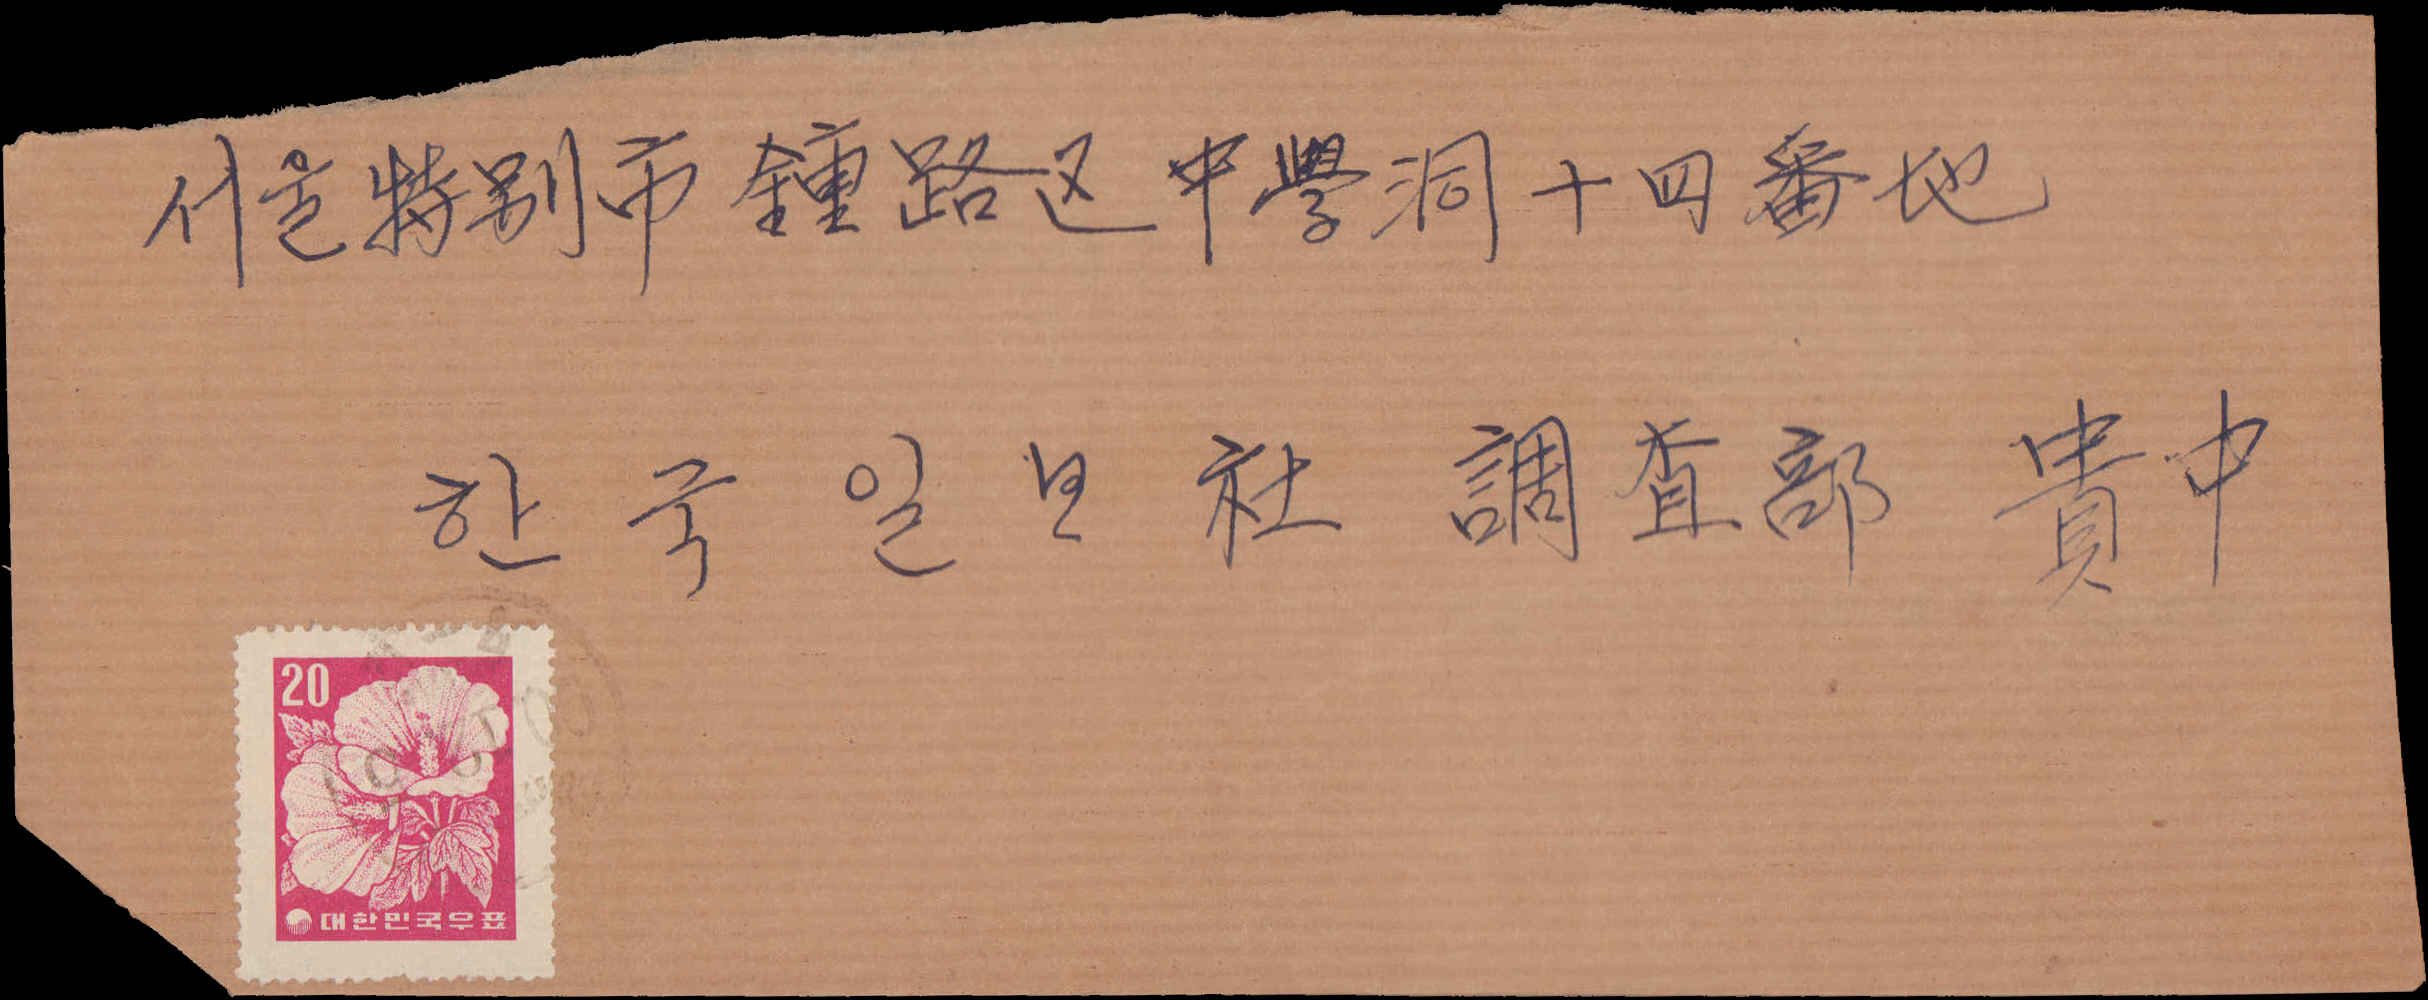 서울特別市 鍾路区 中學洞 十四 番地
한국일보社 調査部 貴中
20
대한민국우표